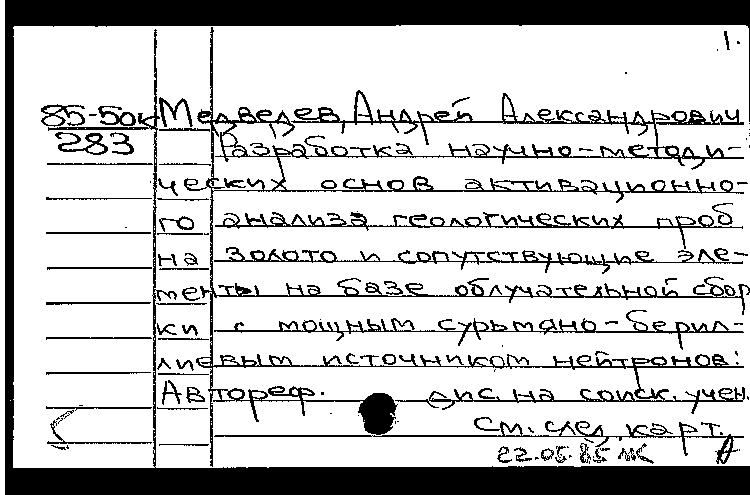 1.
85-5ок Медведев, Андрей Александрович
283 Разработка научно-методи-
ческих основ активационно-
го анализа геологических проб
на золото и сопутствующие эле-
менты на базе облучательной сбор
ки с мощным сурьмяно-берил-
лиевым источником нейтронов:
Автореф. дис. на соиск. учен.
См. след. карт.
22.05.85